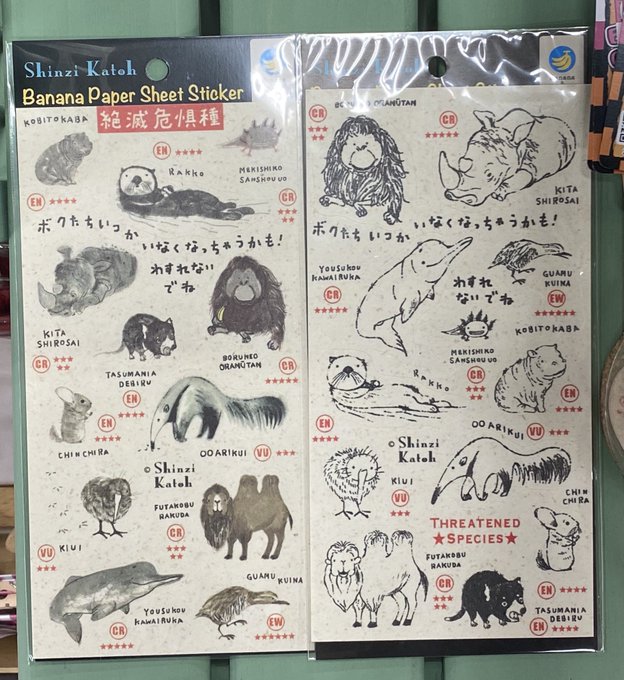 Shinzi Katoh
Banana Paper Sheet Sticker
絶滅危惧種
KOBITOKABA
EN ★★★★
EN ★★★★
RAKKO
MEKISHIKO
SANSHOUUO
CR
★★★
★★
ボクたちいつか
いなくなっちゃうかも!
わすれない
でね
KITA
SHIROSAI
CR ★★★
★★
TASUMANIA
DEBIRU
EN
★★★★
BORUNEO
ORANŪTAN
CR
★★★★★
CHINCHIRA
EN
★★★★
OOARIKUI
VU ★★★
© Shinzi
Katoh
KIUI
VU
★★★
FUTAKOBU
RAKUDA
CR
★★★
★★
YOUSUKOU
KAWAIRUKA
CR
★★★★★
GUAMU
KUINA
EW
★★★★★★
ORANŪTAN
CR
★★★
★★
CR
★★★★★
KITA
SHIROSAI
ボクたちいつか
いなくなっちゃうかも!
わすれ
ないでね
YOUSUKOU
KAWAIRUKA
CR
★★★★★
GUAMU
KUINA
EW
★★★★★★
MEKISHIKO
SANSHOUUO
CR
★★★
★★
KOBITOKABA
EN
★★★★
RAKKO
EN
★★★★
OOARIKUI
VU ★★★
© Shinzi
Katoh
KIUI
VU
★★★
CHIN
CHIRA
EN ★★★★
THREATENED
★SPECIES★
FUTAKOBU
RAKUDA
CR
★★★
★★
TASUMANIA
DEBIRU
EN ★★★★